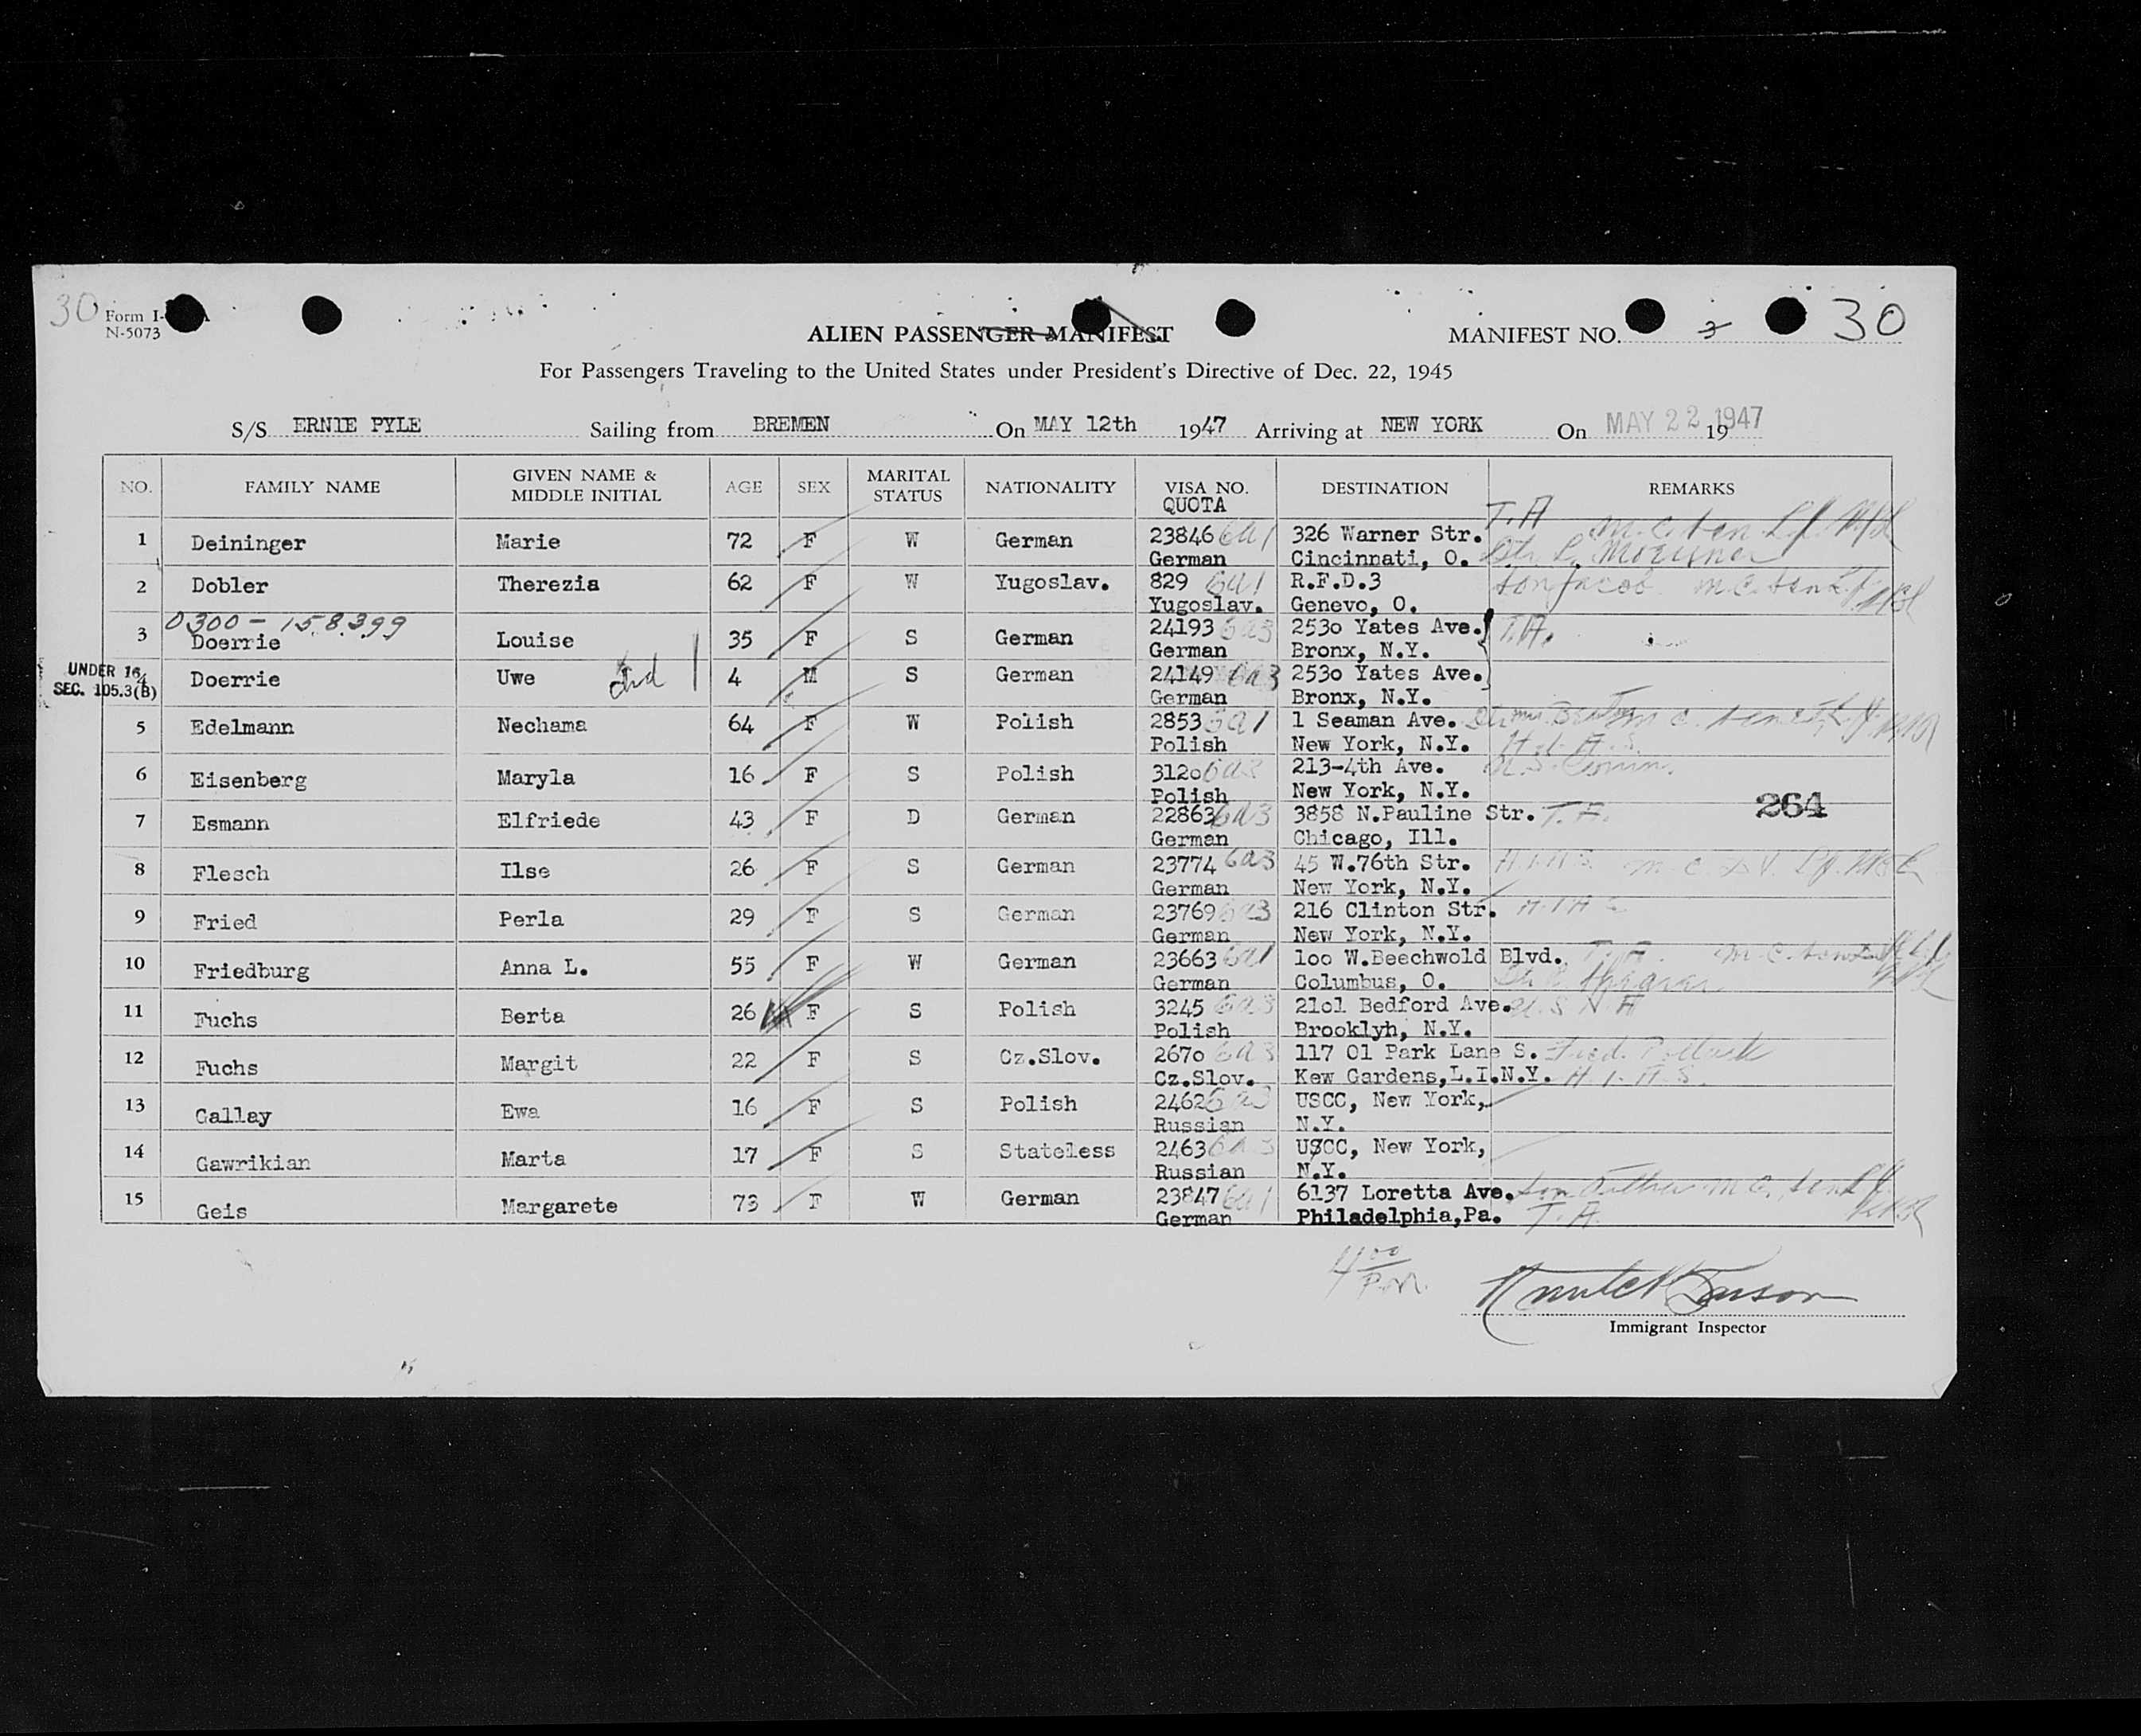 30 Form I-
N-5073
ALIEN PASSENGER MANIFEST
MANIFEST NO. 3 30
For Passengers Traveling to the United States under President's Directive of Dec. 22, 1945
S/S ERNIE PYLE Sailing from BREMEN On MAY 12th 1947 Arriving at NEW YORK On MAY 22 1947 19
NO. FAMILY NAME GIVEN NAME & MIDDLE INITIAL AGE SEX MARITAL STATUS NATIONALITY VISA NO. QUOTA DESTINATION REMARKS
1 Deininger Marie 72 F W German 23846 6a1 326 Warner Str. T.A
German Cincinnati, O.
2 Dobler Therezia 62 F W Yugoslav. 829 6a1 R.F.D.3 son Jacob
Yugoslav. Genevo, O.
0300-158399
3 Doerrie Louise 35 F S German 24193 6a3 2530 Yates Ave. T.A.
German Bronx, N.Y.
UNDER 16
SEC. 105.3(B)
4 Doerrie Uwe 4 M S German 24149 6a3 2530 Yates Ave.
German Bronx, N.Y.
5 Edelmann Nechama 64 F W Polish 2853 6a1 1 Seaman Ave.
Polish New York, N.Y. H.I.A.S.
6 Eisenberg Maryla 16 F S Polish 3120 6a3 213-4th Ave. U.S. Comm.
Polish New York, N.Y.
264
7 Esmann Elfriede 43 F D German 22863 6a3 3858 N.Pauline Str. T.A.
German Chicago, Ill.
8 Flesch Ilse 26 F S German 23774 6a3 45 W.76th Str. H.I.A.S.
German New York, N.Y.
9 Fried Perla 29 F S German 23769 6a3 216 Clinton Str. H.I.A.S
German New York, N.Y.
10 Friedburg Anna L. 55 F W German 23663 6a1 100 W.Beechwold Blvd. T.A.
German Columbus, O.
11 Fuchs Berta 26 F S Polish 3245 6a3 2101 Bedford Ave.
Polish Brooklyh, N.Y.
12 Fuchs Margit 22 F S Cz.Slov. 2670 6a3 117 01 Park Lane S. Fred. Pollack
Cz.Slov. Kew Gardens,L.I.N.Y. H.I.A.S.
13 Gallay Ewa 16 F S Polish 2462 6a3 USCC, New York,
Russian N.Y.
14 Gawrikian Marta 17 F S Stateless 2463 6a3 USCC, New York,
Russian N.Y.
15 Geis Margarete 73 F W German 23847 6a1 6137 Loretta Ave. son
German Philadelphia,Pa. T.A.
4 00 P.M.
Immigrant Inspector